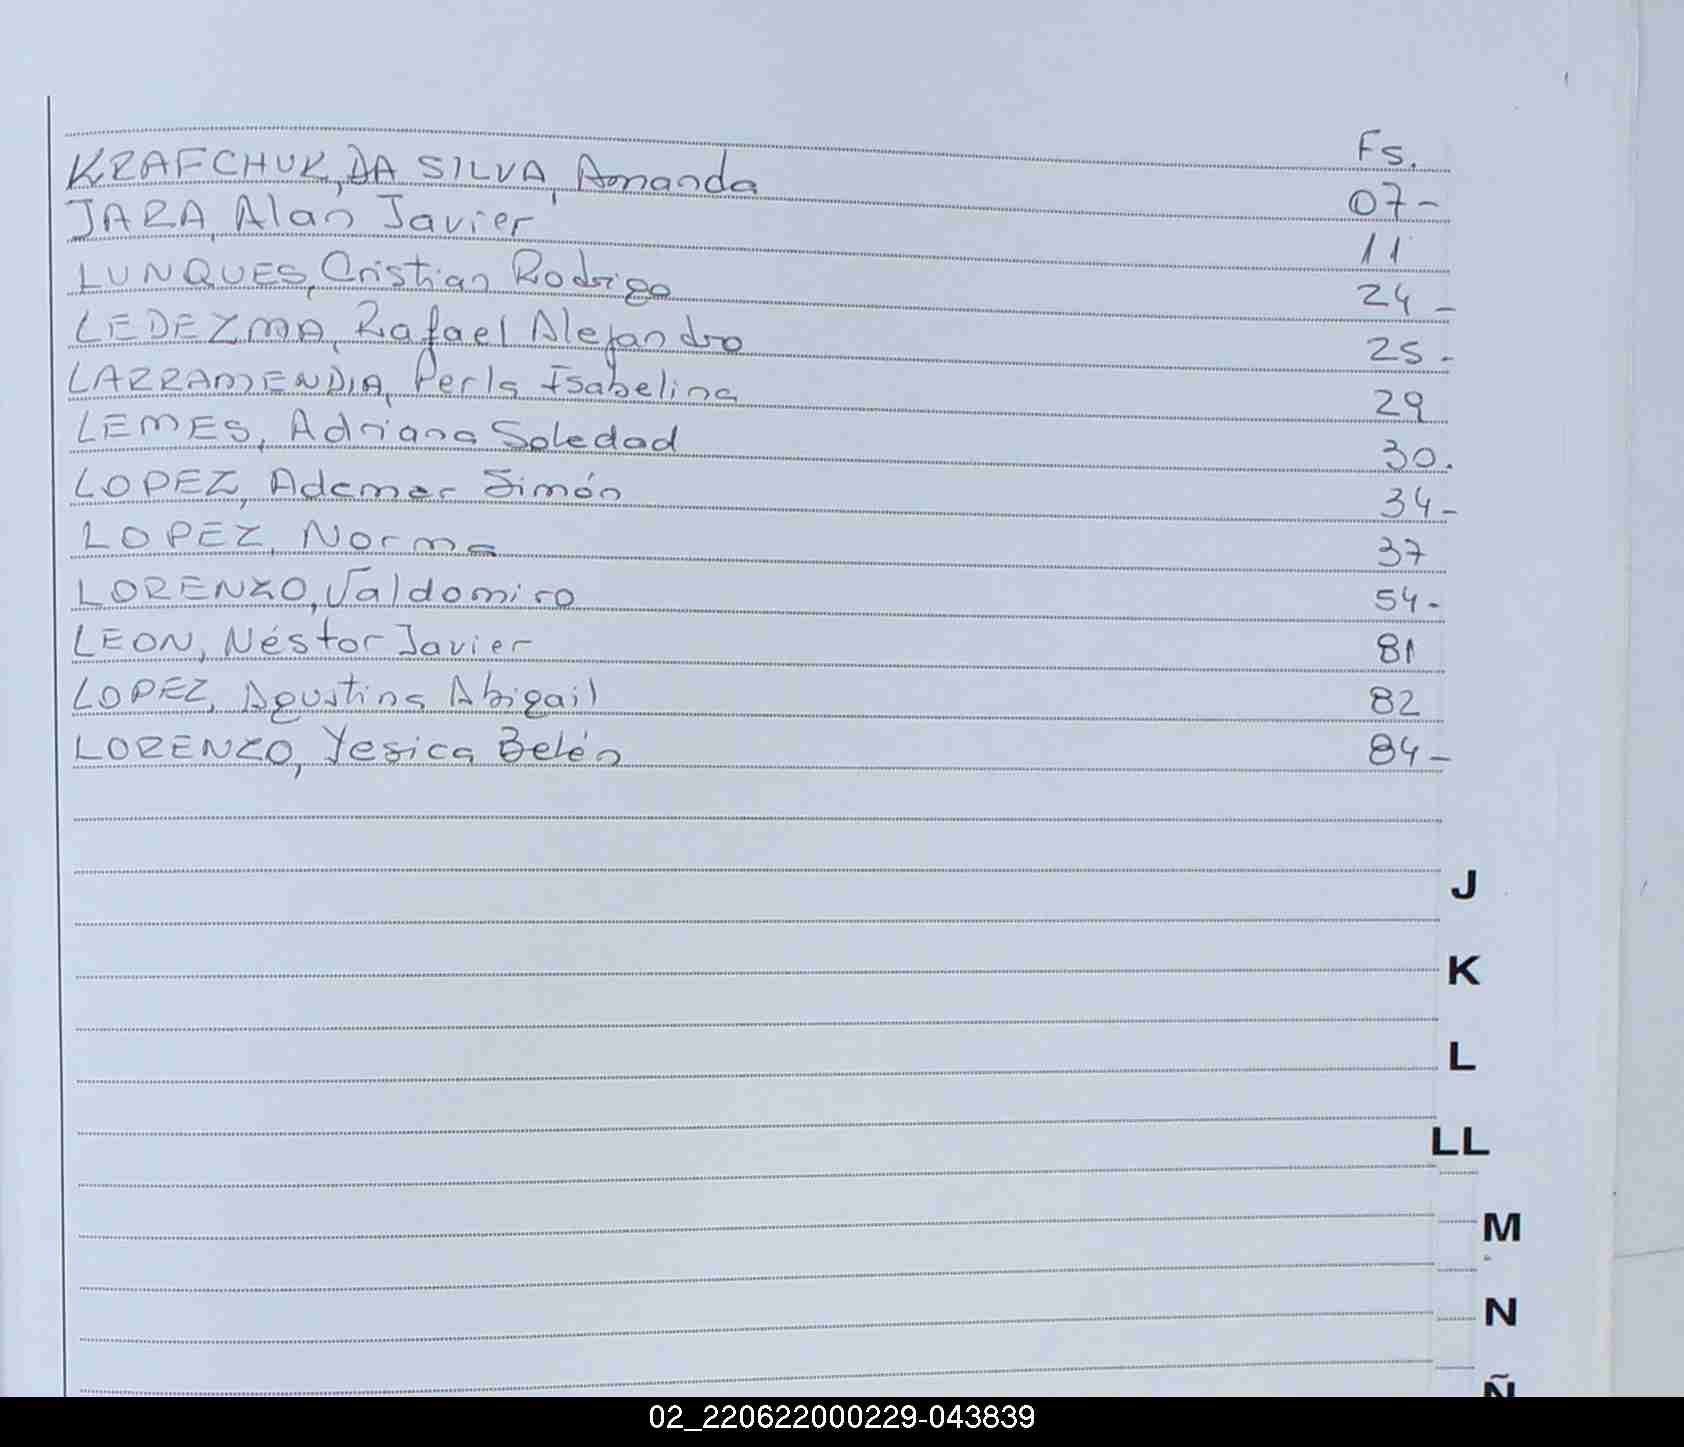 Fs.
KRAFCHUK, DA SILVA, Amanda 07-
JARA, Alan Javier 11
LUNQUES, Cristian Rodrigo 24 -
LEDEZMA, Rafael Alejandro 25 -
LARRAMENDIA, Perla Isabelina 29
LEMES, Adriana Soledad 30.
LOPEZ, Ademar Simón 34-
LOPEZ, Norma 37
LORENZO, Valdomiro 54-
LEON, Néstor Javier 81
LOPEZ, Agustina Abigail 82
LORENZO, Yesica Belén 84-
J
K
L
LL
M
N
Ñ
02_220622000229-043839